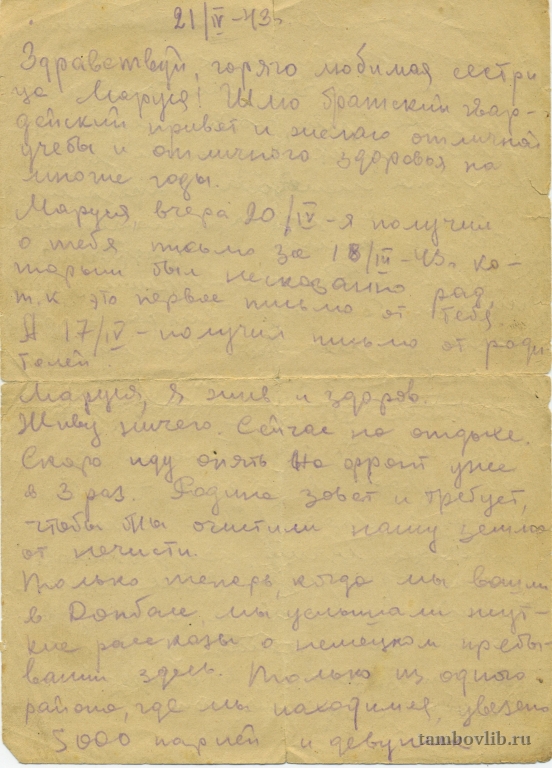 21/IV-43г
Здравствуй, горячо любимая сестри
ца Маруся! Шлю братский гвар-
дейский привет и желаю отличной
учебы и отличного здоровья на
многие годы.
Маруся, вчера 20/IV-я получил
о тебя письмо за 18/III-43г. ко-
торым был несказанно рад,
т.к это первое письмо от тебя
А 17/IV-получил письмо от роди
телей
Маруся, я жив и здоров.
Живу ничего. Сейчас на отдыхе.
Скоро иду опять на фронт уже
в 3 раз. Родина зовет и требует,
чтобы мы очистили нашу землю
от нечисти.
Только теперь, когда мы вошли
в Донбасс, мы услышали жут-
кие рассказы о немецком пребы-
вании здесь. Только из одного
района, где мы находимся, увезено
5000 парней и девушек
tambovlib.ru